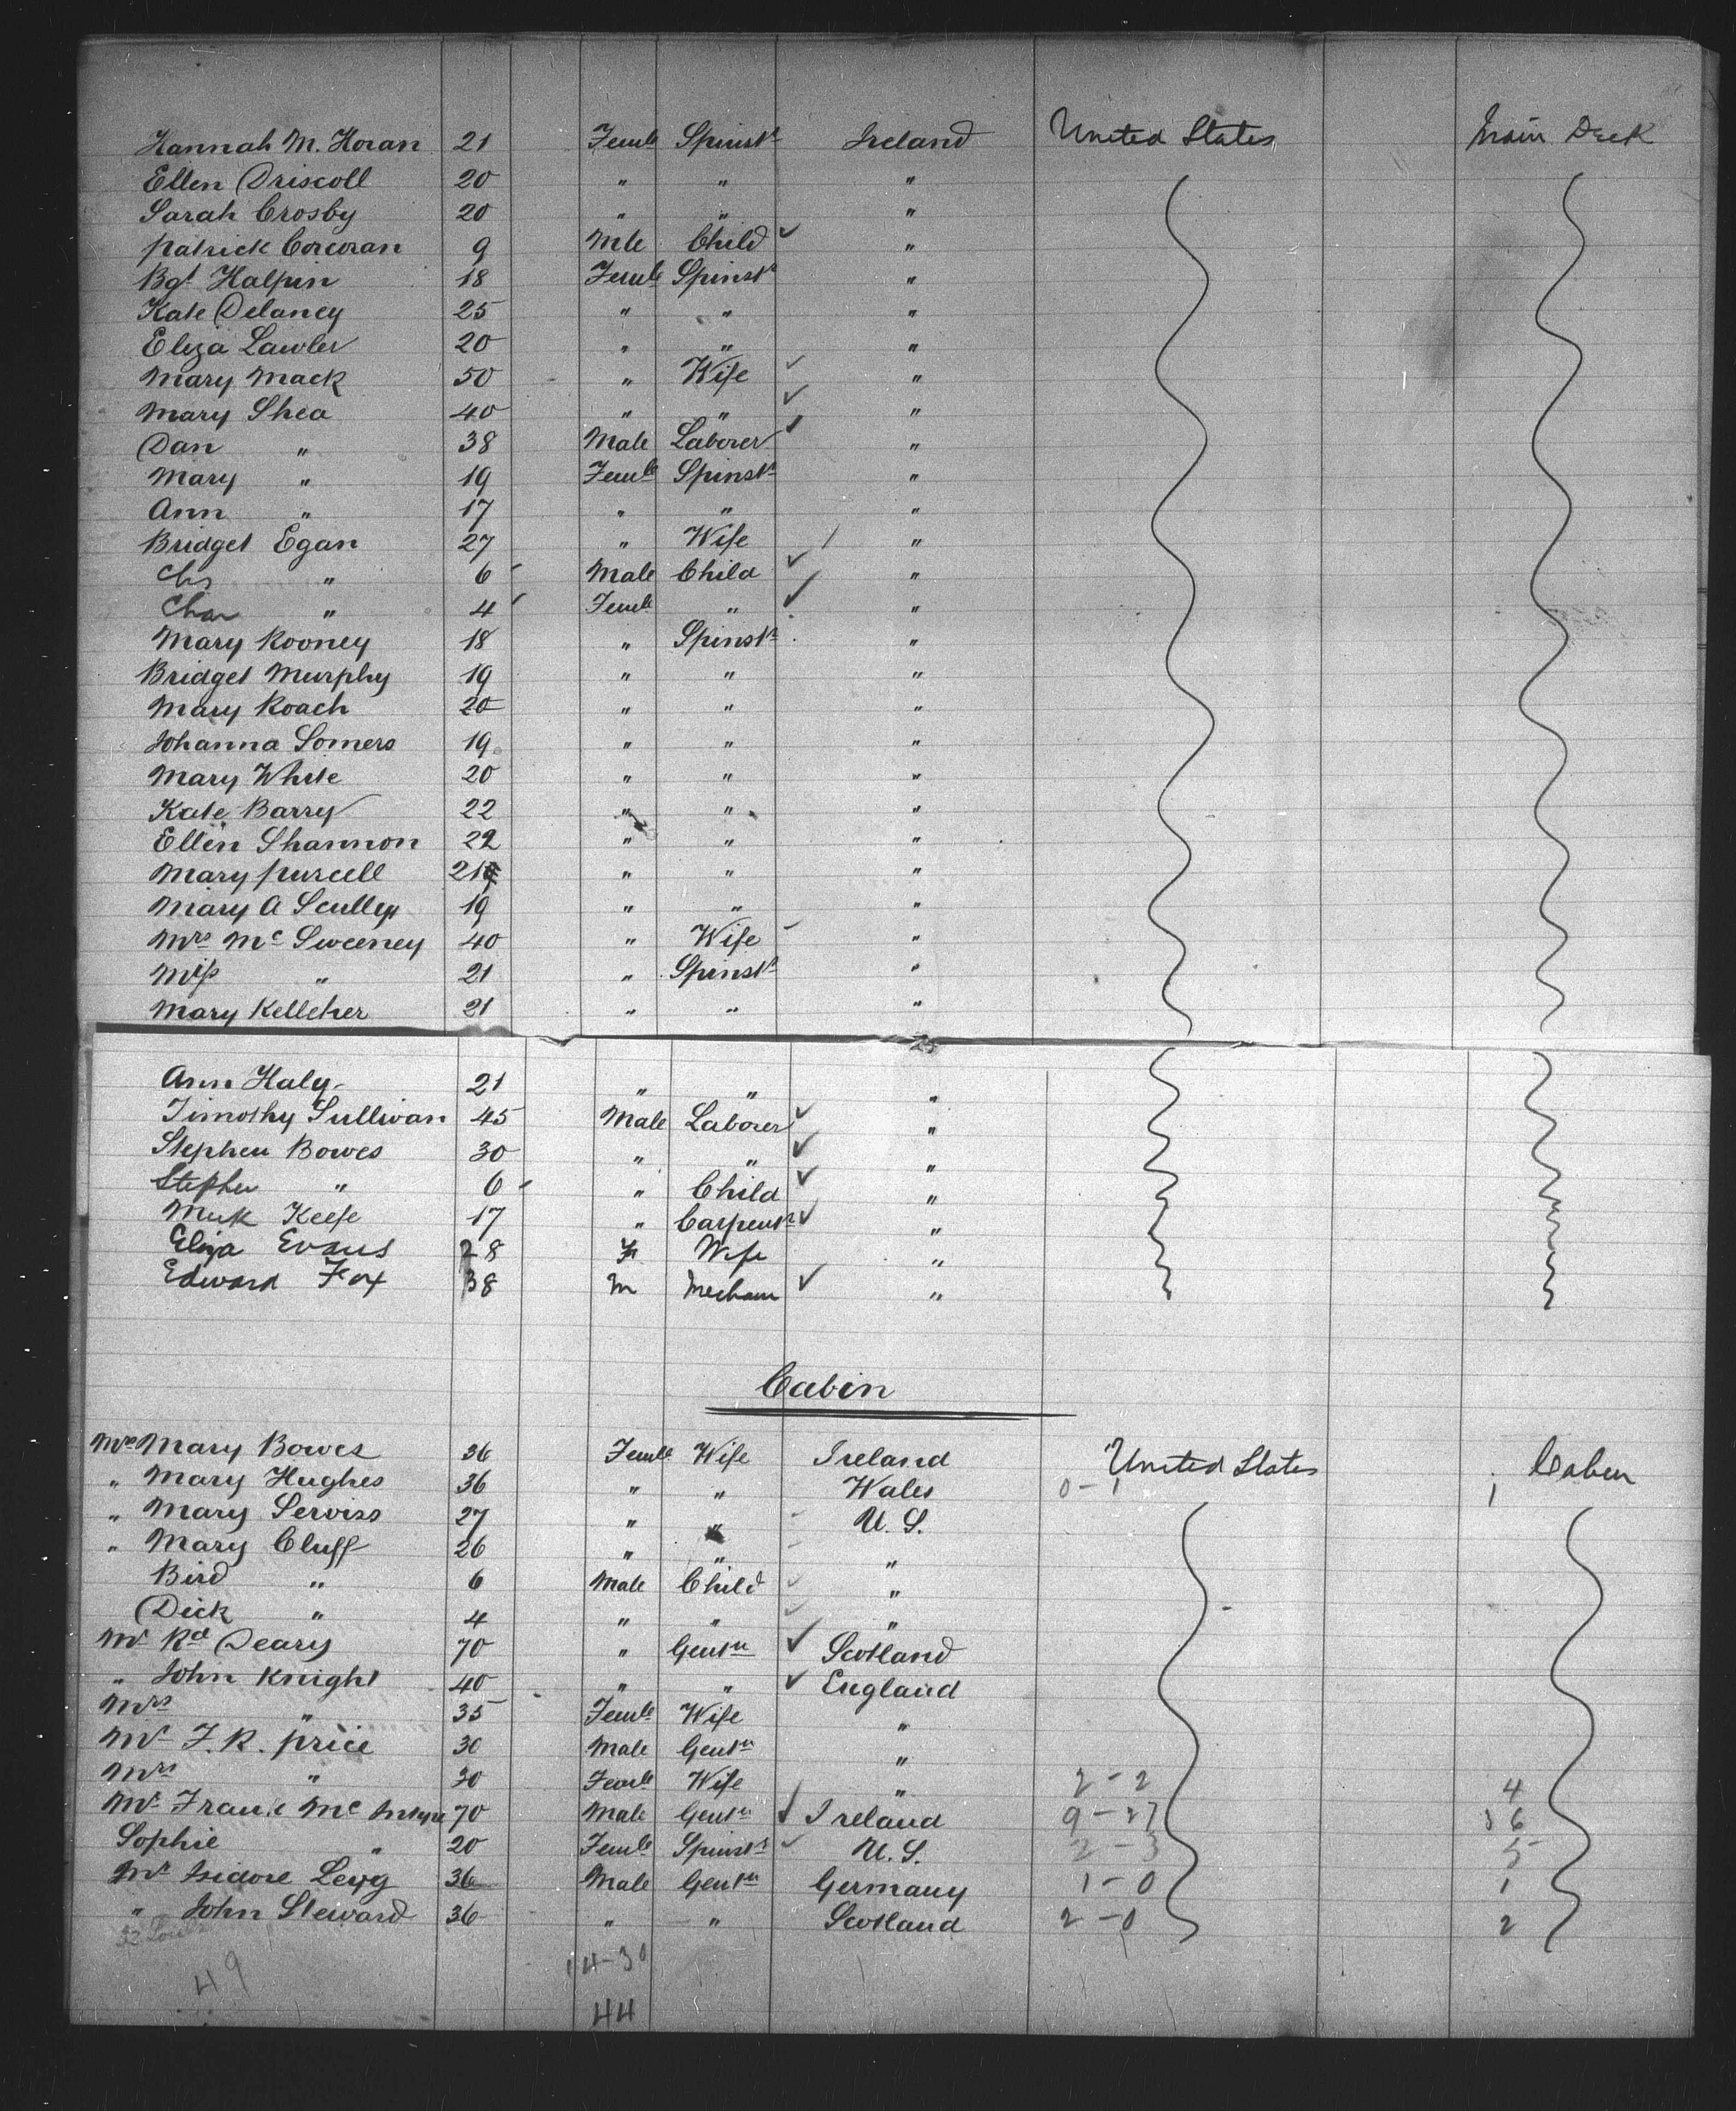 Hannah M. Horan 21 Femle Spinstr Ireland United States Main Deck
Ellen Driscoll 20 " " "
Sarah Crosby 20 " " "
Patrick Corcoran 9 Mle Child ✓ "
Bgt Halpin 18 Femle Spinstr "
Kate Delaney 25 " " "
Eliza Lawler 20 " " "
Mary Mack 50 " Wife ✓ "
Mary Shea 40 " " ✓ "
Dan " 38 Male Laborer ✓ "
Mary " 19 Femle Spinstr "
Ann " 17 " " "
Bridget Egan 27 " Wife / "
Chs " 6 Male Child ✓ "
Char " 4 Femle " ✓ "
Mary Rooney 18 " Spinstr "
Bridget Murphy 19 " " "
Mary Roach 20 " " "
Johanna Somers 19 " " "
Mary White 20 " " "
Kate Barry 22 " " "
Ellen Shannon 22 " " "
Mary Purcell 21 " " "
Mary A Scully 19 " " "
Mrs Mc Sweeney 40 " Wife "
Miss " 21 " Spinstr "
Mary Kelleher 21 " " "
Ann Haly 21 " " "
Timothy Sullivan 45 Male Laborer ✓ "
Stephen Bowes 30 " " ✓ "
Stephen " 6 " Child ✓ "
Keefe 17 " Carpentr ✓ "
Eliza Evans 28 F Wife "
Edward Fox 38 M Mecham ✓ "
Cabin
Mrs Mary Bowes 36 Femle Wife Ireland United States Cabin
" Mary Hughes 36 " " Wales 0-1 1
" Mary Serviss 27 " " U.S.
" Mary Cluff 26 " " "
Bird " 6 Male Child ✓ "
Dick " 4 " " ✓ "
Mr Rd Deary 70 " Gentn ✓ Scotland
" John Knight 40 " " ✓ England
Mrs " 35 Femle Wife "
Mr F. R. Price 30 Male Gentn "
Mrs " 30 Femle Wife " 2-2 4
Mr Frank Mc 70 Male Gentn ✓ Ireland 9-27 36
Sophie " 20 Femle Spinstr ✓ U.S. 2-3 5
Mr Isidore Levy 36 Male Gentn Germany 1-0 1
" John Steward 36 " " Scotland 2-0 2
49 14-30
44